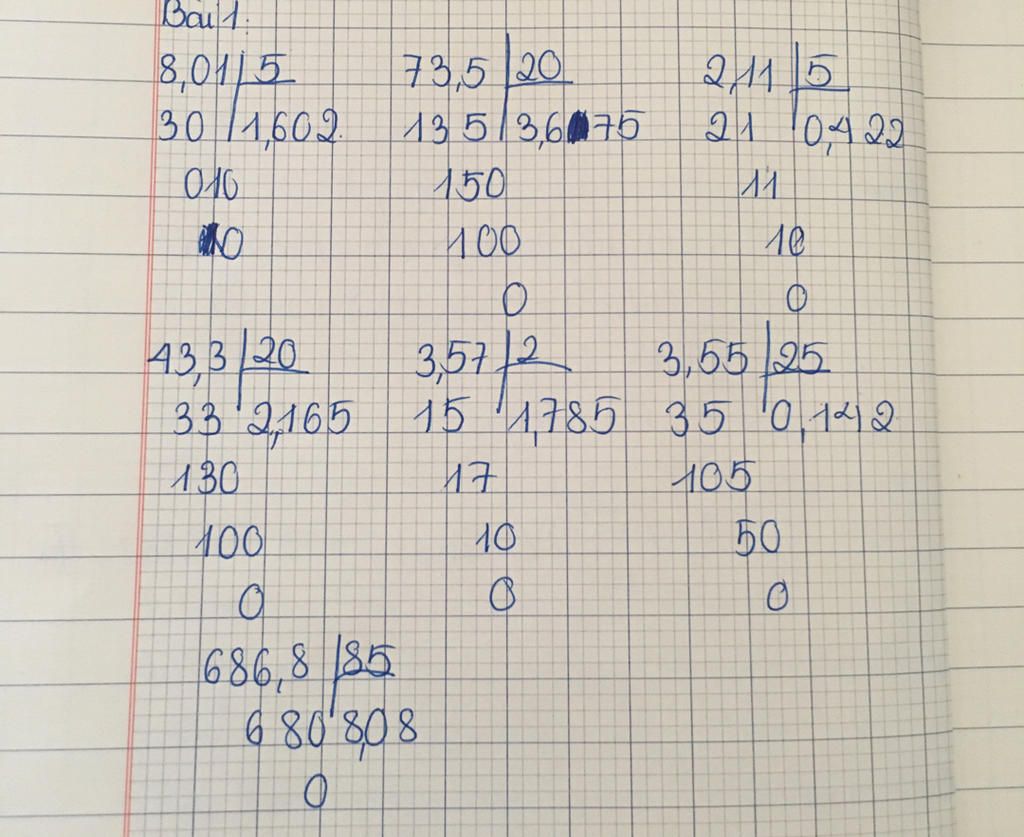 Bài 1.
8,01 5 73,5 20 2,11 5
30 1,602. 13 5 3,675 21 0,422
010 150 11
0 100 10
0 0
43,3 20 3,57 2 3,55 25
33 2,165 15 1,785 35 0,142
130 17 105
100 10 50
0 0 0
686,8 85
6 80 8,08
0